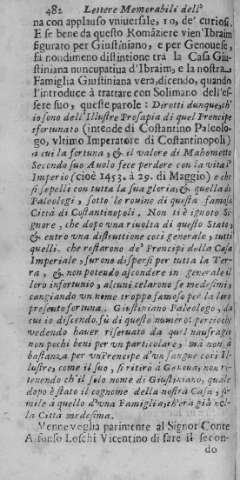 482 Lettere Memorabili dell'
na con applauso vniuersale, 10, de' curiosi.
E se bene da questo Romāziere vien'Ibraim
figurato per Giustiniano, e per Genouese,
fà nondimeno distintione trà la Casa Giu-
stiniana nuncupatiua d'Ibraim, e la nostra
Famiglia Giustiniana vera, dicendo, quando
l'introduce à trattare con Solimano dell'es-
sere suo, queste parole: Dirotti dunque, ch'
io sono dell'Illustre Prosapia di quel Prencipe
sfortunato (intēde di Costantino Paleolo-
go, vltimo Imperatore di Costantinopoli)
à cui la fortuna, & il valore di Mahometto
Secondo suo Auolo fece perdere con la vita l'
Imperio (cioè 1453. à 29. di Maggio) e che
si sepellì con tutta la sua gloria, & quella di
Paleologi, sotto le rouine di questa famosa
Città di Costantinopoli. Non ti è ignoto Si-
gnore, che dopo vna riuolta di questo Stato,
& entro vna distruttione così generale, tutti
quelli, che restorono de' Prencipi della Casa
Imperiale, furono dispersi per tutta la Ter-
ra, & non potendo ascondere in generale il
loro infortunio, alcuni celarono se medesimi,
cangiando vn nome troppo famoso per la loro
presente fortuna. Giustiniano Paleologo, da
cui io discendo, fù di questo numero; percioche
vedendo hauer riseruato da quel naufragio
non pochi beni per vn particolare, mà non à
bastanza per vn Prencipe d'vn sangue così Il-
lustre, come il suo, si ritirò à Genoua, non ri-
tenendo ch'il solo nome di Giustiniano, quale
dopo è stato il cognome della nostra Casa, si-
mile à quello d'vna Famiglia, ch'era già nel-
la Città medesima.
Venne voglia parimente al Signor Conte
Alfonso Loschi Vicentino di fare il secon-
do